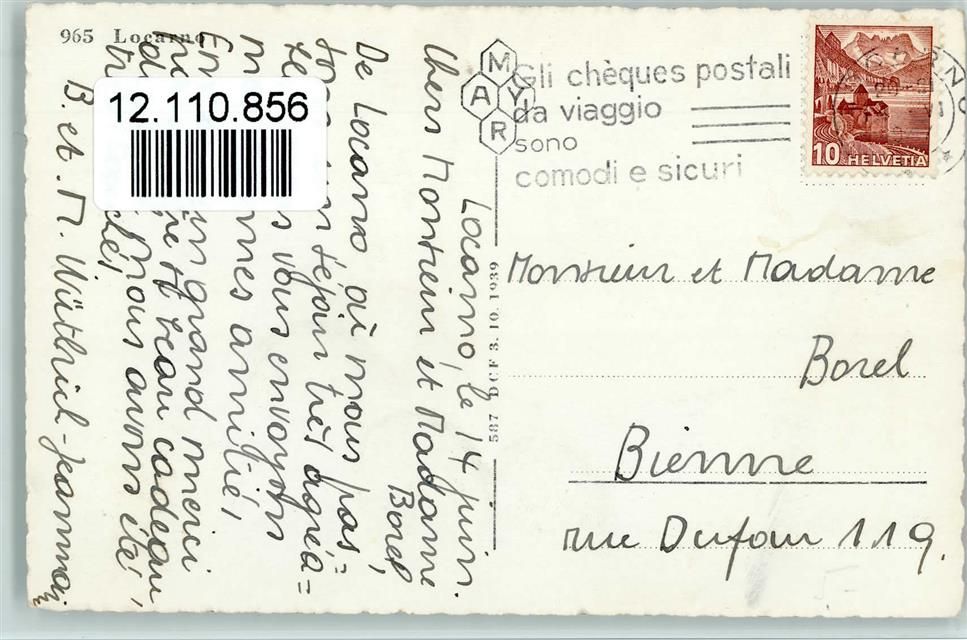 965 Locarno
12.110.856
MAYR
Gli chèques postali
da viaggio
sono
comodi e sicuri
10 HELVETIA
587 D.C.F. 3.10.1939
Locarno, le 14 juin.
Chers Monsieur et Madame
Borel,
De Locarno où nous pas=
un séjour très agréa=
vous envoyons
amitié,
un grand merci
beau cadeau
nous avons été
B. et M. Wüthrich-Jeannnay
Monsieur et Madame
Borel
Bienne
rue Dufour 119.